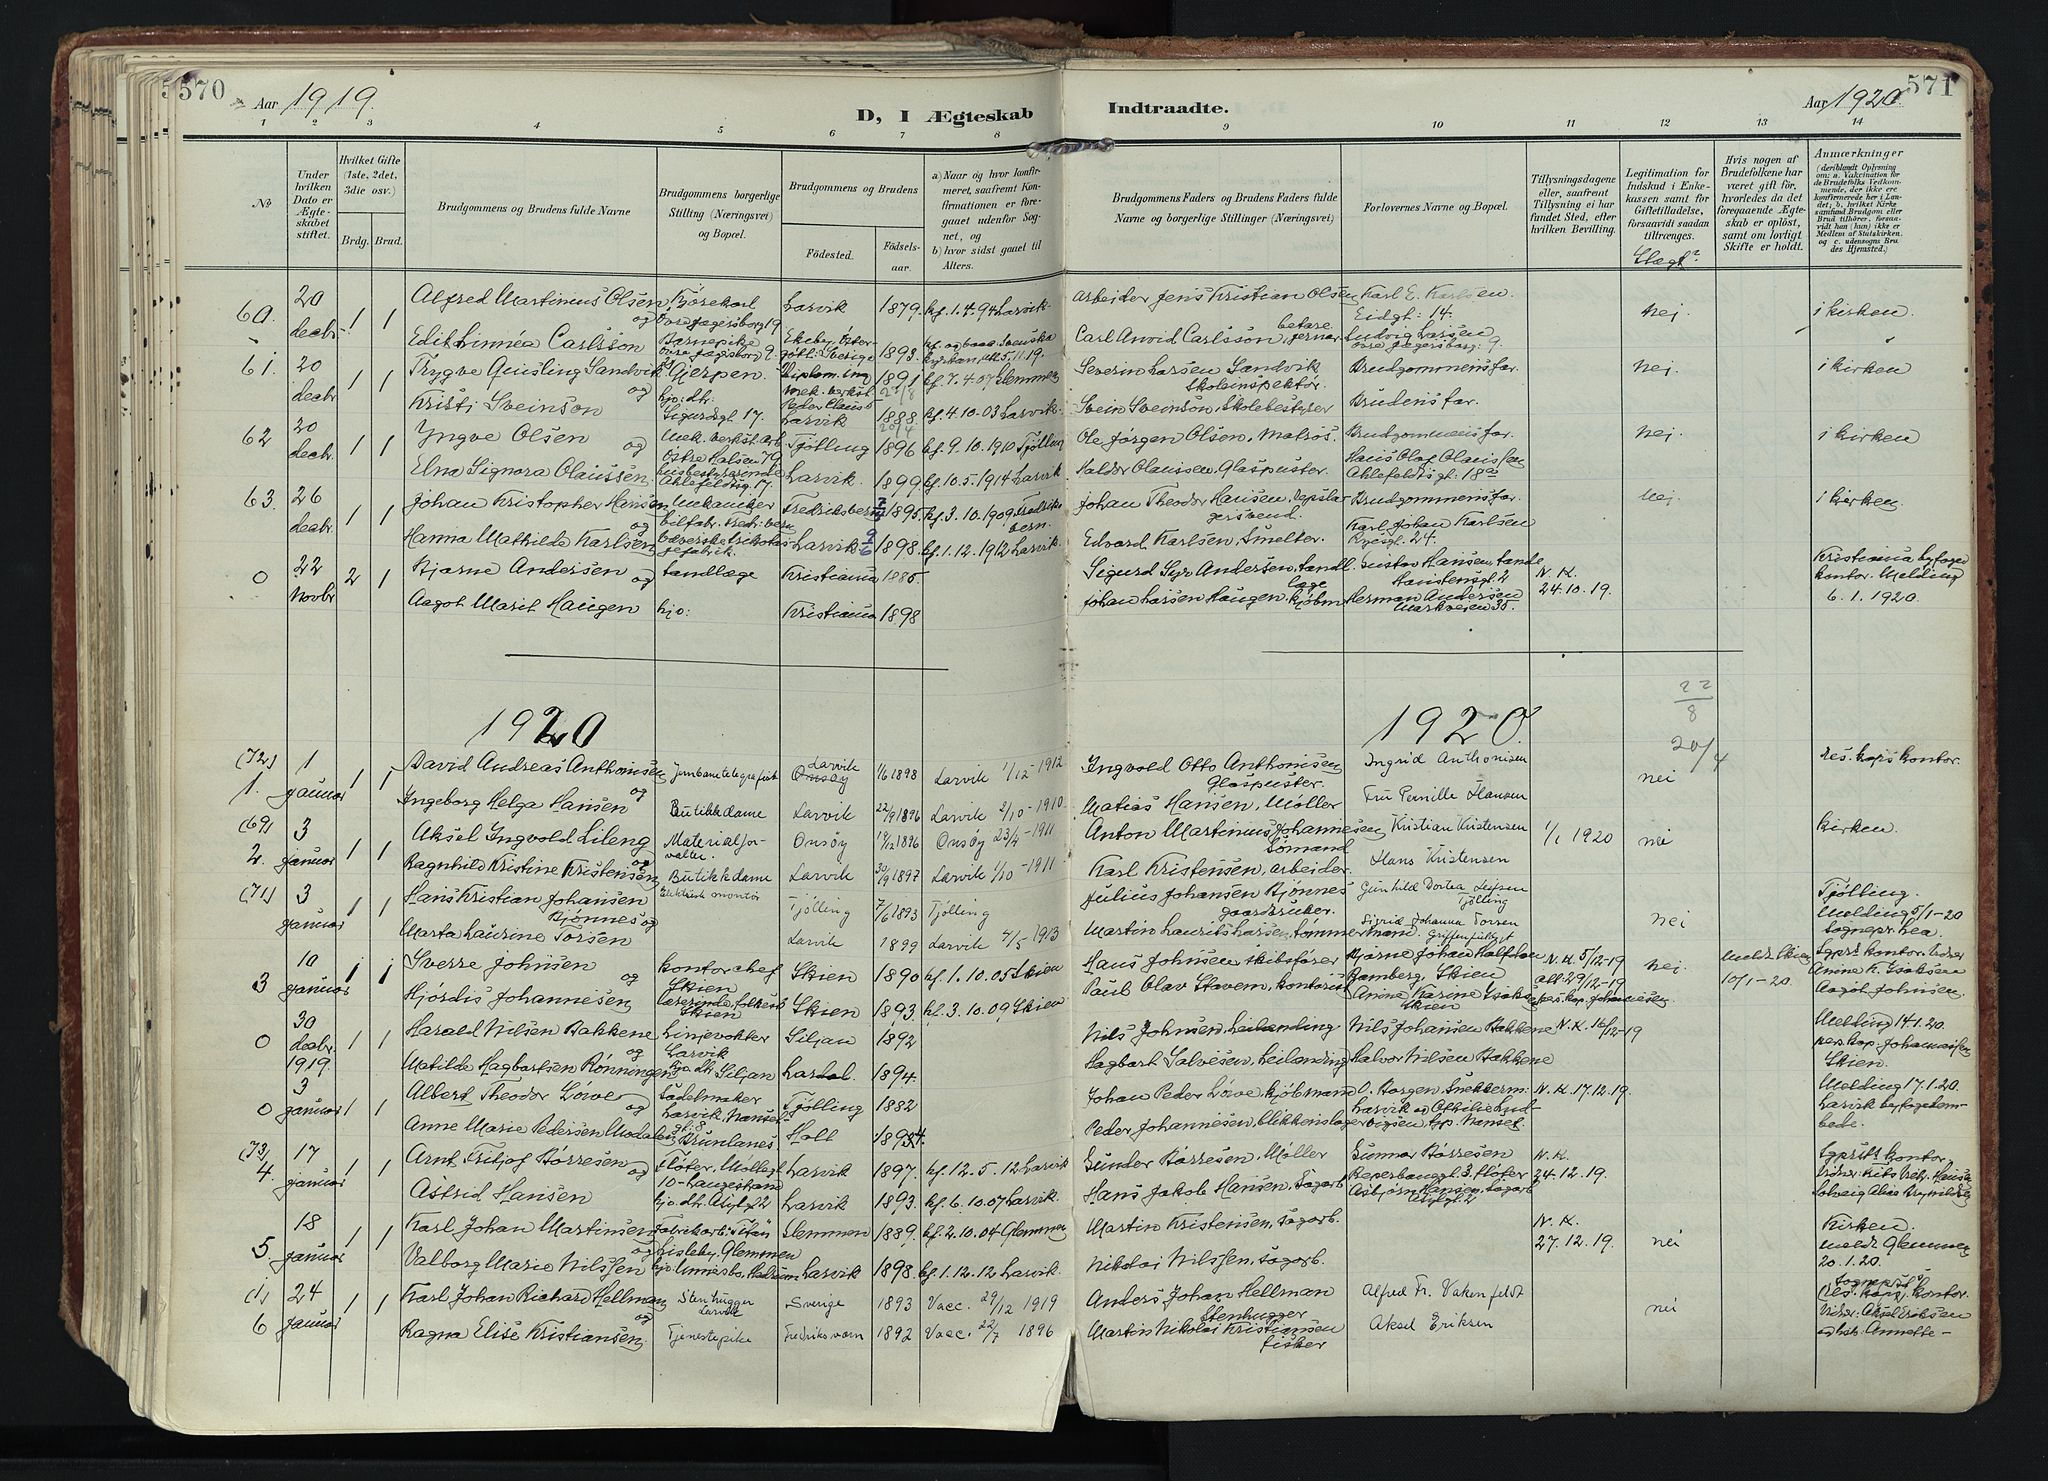 570
Aar 1919.
D, I Ægteskab
Indtraadte.
Aar 1920.
571
1 2 3 4 5 6 7 8 9 10 11 12 13 14
No
Under hvilken Dato er Ægteskabet stiftet.
Hvilket Gifte (1ste, 2det, 3die osv.)
Brdg. Brud.
Brudgommens og Brudens fulde Navne
Brudgommens borgerlige Stilling (Næringsvei) og Bopæl.
Brudgommens og Brudens
Födested.
Födselsaar.
a) Naar og hvor konfirmeret, saafremt Konfirmationen er foregaaet udenfor Sognet, og
b) hvor sidst gaaet til Alters.
Brudgommens Faders og Brudens Faders fulde Navne og borgerlige Stillinger (Næringsvei)
Forlovernes Navne og Bopæl.
Tillysningsdagene eller, saafremt Tillysning ei har fundet Sted, efter hvilken Bevilling.
Legitimation for Indskud i Enkekassen samt for Giftetilladelse, forsaavidt saadan tiltrænges.
Slægt?
Hvis nogen af Brudefolkene har været gift før, hvorledes da det foregaaende Ægteskab er oplöst, samt om lovligt Skifte er holdt.
Anmærkninger
(deriblandt Oplysning om: a. Vakcination for de Brudefolks Vedkommende, der ikke ere konfirmerede her i Landet; b. hvilket Kirkesamfund Brudgom eller Brud tilhörer, forsaavidt han (hun) ikke er Medlem af Statskirken, og c. udensogns Brudes Hjemsted.)
60. 20 decbr. 1 1 Alfred Martinius Olsen og Kjørekarl Øvre Jægersborg 19 Larvik 1879. kf. 1.4.94 Larvik. arbeider Jens Kristian Olsen Karl E. Karlsen. Eidgt: 14. nej. i kirken.
Edit Linnéa Carlsson Barnepike øvre Jægersborg 9. Ekeby, Östergötl: Sverige 1893. Carl Arvid Carlsson, Ludvig Larsen øvre Jægersborg: 9.
61. 20 decbr. 1 1 Trygve Quisling Sandvik og Gjerpen. 1891 kf. 7.4.07 Glemmen Severin Larsen Sandvik Skoleinspektør. Brudgommens far. nej. i kirken
Kristi Sveinson hjo: dtr. Sigurdsgt 17. Larvik 1888 kf. 4.10.03 Larvik. Svein Sveinson, Skolebestyrer Brudens far.
62 20 decbr. 1 1 Yngve Olsen og Mek. verkst. arb Østre Halsen 79 Tjølling 1896 kf. 9.10.1910 Tjølling Ole Jørgen Olsen, Matros. Brudgommens far. nej. i kirken
Elna Signora Olaussen. husbestyrerinde Ahlefeldtsg. 17 Larvik. 1899 kf. 10.5.1914 Larvik Haldor Olaussen, Glaspuster. Hans Olaf Olaussen Ahlefeldtsgt: 18a
63. 26 decbr. 1 1 Johan Kristopher Hansen og Mekaniker Fredriksvern 1895 kf. 3.10.1909 Fredriksvern. Johan Theodor Hansen, Brudgommens far. nej. i kirken.
Hanna Mathilde Karlsen Larvik 9/6 1898. kf. 1.12.1912 Larvik. Edvard Karlsen, Smelter. Karl Johan Karlsen Ryesgt. 24.
0 22 Novbr 2 1 Bjarne Andersen og tandlæge Kristiania 1885 Sigurd Syr Andersen, tandlæge Gustav Hansen, tandl. N.K. 24.10.19. Kristiania byfogedkontor. Melding 6.1.1920.
Aagot Marit Haugen hjo: Kristiania 1898 Johan Larsen Haugen, kjøbm Herman Andersen Markveien 35.
1920
1920.
22/8
20/4
(72) 1. 1 januar 1 1 David Andreas Anthonisen og Jernbanetelegrafist Larvik Onsøy 1/6 1898 Larvik 1/12-1912 Ingvold Otto Anthonisen Glaspuster. Ingrid Anthonisen nei res. kaps kontor.
Ingeborg Helga Hansen Butikkdame Larvik 22/9 1896 Larvik 2/10-1910 Matias Hansen, Møller Fru Pernille Hansen
(69) 2. 3 januar 1 1 Aksel Ingvold Lileng og Materialforvalter. Onsøy 19/12 1896 Onsøy 23/4-1911 Anton Martinius Johannesen Sømand Kristian Kristensen 1/1 1920 nei kirken.
Ragnhild Kristine Kristensen Butikkdame Larvik 30/9 1897 Larvik 1/10-1911 Karl Kristensen, arbeider. Hans Kristensen
(71) 3 januar 1 1 Hans Kristian Johansen Bjønnes og Elektrisk montør Tjølling 7/6 1893 Tjølling Julius Johansen Bjønnes gaardbruker. Gunhild Dortea Tjølling nei Tjølling. Melding 5/1-20 sognepr. Lea.
Marta Laurine Torsen Larvik 1899 Larvik 4/5 1913 Martin Laurits Larsen, tømmermand. Sigrid Johanna Torsen
3 10 januar 1 1 Sverre Johnsen og kontorchef Skien Skien 1890 kf. 1.10.05 Skien Hans Johnsen, skibsfører Bjarne Johan Halfdan Bamberg, Skien N.K. 5/12-19 att 29/12-19 nej. meldt Skien 10/1-20. Sgprs kontor. Vidner Anine K. Isaksen Aagot Johnsen.
Hjørdis Johannesen Lærerinde, folkesk. Skien Skien 1893 kf. 3.10.09 Skien Paul Olav Stavem, kontorist Anine Karine Isaksen Skien pers. kap. Johannesen
0 30 decbr. 1919. 1 1 Harald Nilsen Bakkene og Linjevokter Larvik Siljan 1892 Nils Johnsen, Leilænding Nils Johansen Bakkene N.K. 16/12-19 Melding 14.1.20. pers. kap. Johannesen Skien.
Matilde Hagbartsen Rønningen hjo. dtr. Siljan Lardal. 1894. Hagbart Salvesen, Leilænding Halvor Nilsen Bakkene
0 3 januar 1 1 Albert Theodor Löwe og Sadelmaker Larvik, Nansetgt: 8 Tjølling 1882 Johan Peder Löwe, kjøbmand O. Borgen Snekkerm. Larvik N.K. 17.12.19. Melding 17.1.20. Larvik byfogedembede.
Anne Marie Pedersen Brunlanes Holt 1894. Peder Johannesen, blikkenslager
(73) 4. 17 januar 1 1 Arnt Fritjof Børresen og Fløter, Møllegt 10 - Langestrand Larvik 1897. kf. 12.5.12 Larvik Gunder Børresen, Møller Gunnar Børresen Reperbanegt 3, fløter N.K. 24.12.19. Sgprsts kontor,
Astrid Hansen hjo. dtr. Larvik 1893. kf. 6.10.07 Larvik. Hans Jakob Hansen, Sagarb Asbjørn Hansen, Sagarb
5. 18 januar 1 1 Karl Johan Martinsen og Fabrikarb. Titan Lisleby, Glemmen Glemmen 1889. kf. 2.10.04 Glemmen Martin Kristensen, Sagarb. N.K. 27.12.19. nei Kirken. meldt Glemmen 20.1.20.
Valborg Marie Nilssen Larvik 1898. kf. 1.12.12 Larvik. Nikolai Nilssen, Sagarb.
(1) 6 24 januar 1 1 Karl Johan Richard Hellman og Stenhugger Larvik Sverige 1893 Vacc. 29/12 1919 Anders Johan Hellman Stenhugger Alfred Fr. Vakenfeldt nei (res. kaps) kontor. Vidner: Aksel Eriksen og hst. Annette -
Ragna Elise Kristiansen. Tjenestepike Fredriksværn 1892 Vacc. 22/7 1896 Martin Nikolai Kristiansen fisker Aksel Eriksen